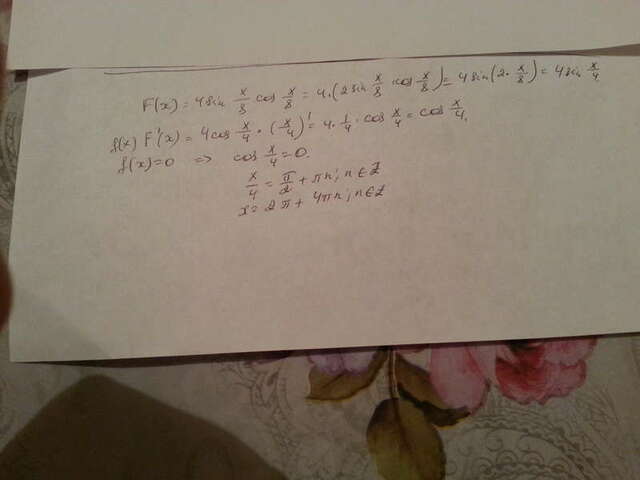 F(x) = 4 sin x/8 cos x/8 = 4·(2 sin x/8 · cos x/8) = 4 sin(2· x/8) = 4 sin x/4
f(x) F'(x) = 4cos x/4 · (x/4)' = 4· 1/4 · cos x/4 = cos x/4.
f(x)=0 => cos x/4 = 0.
x/4 = π/2 + πn; n ∈ Z
x = 2π + 4πn; n ∈ Z